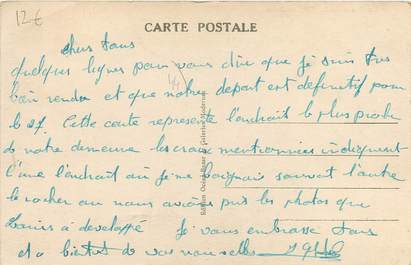 12€
CARTE POSTALE
chers tous
quelques lignes pour vous dire que je suis très
bien rendu et que notre départ est définitif pour
le 27. Cette carte represente l'endroit le plus proche
de notre demeure les croix mentionnées indiquent
l'une l'endroit où je me baignais souvent l'autre
le rocher ou nous avions pris les photos que
a developpé je vous embrasse tous
et a bientot de vos nouvelles